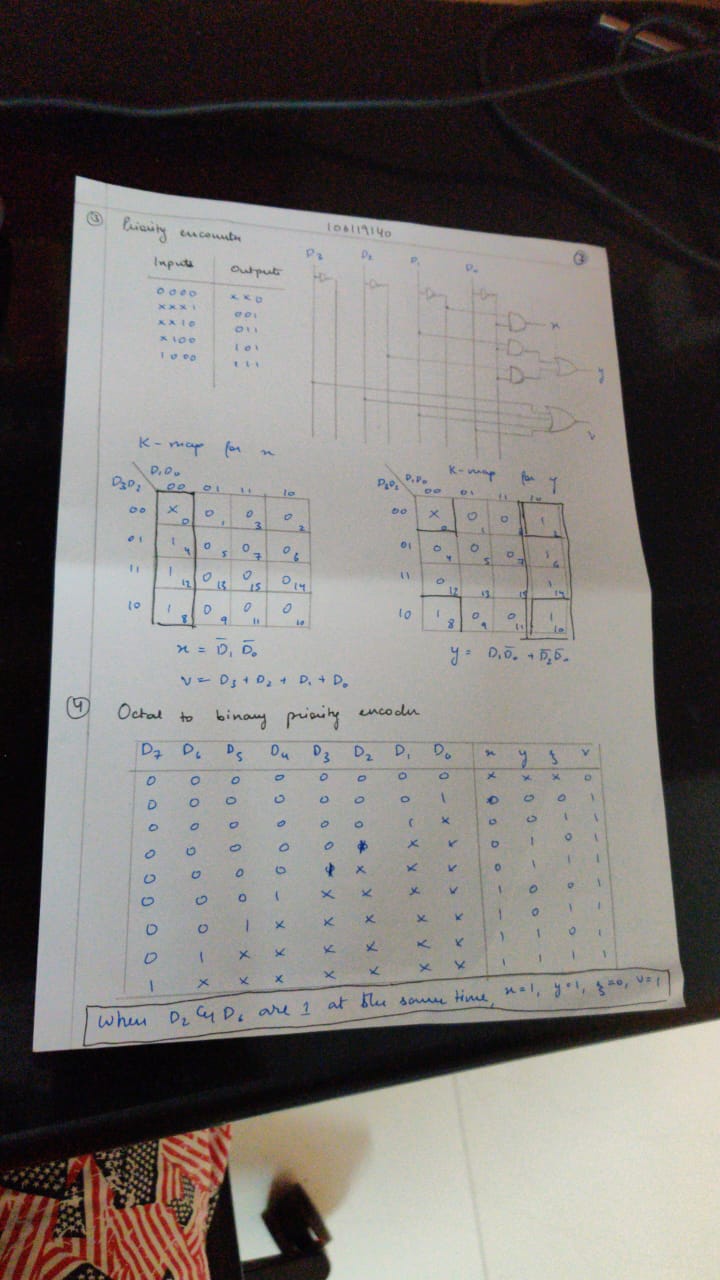 106119140
③ Priority encounter ②
Inputs Outputs
0000 xx0
xxx1 001
xx10 011
x100 101
1000 111
D3 D2 D1 D0
x
y
v
K-map for x
D1D0
D3D2 00 01 11 10
00 X 0 0 1 0 3 0 2
01 1 4 0 5 0 7 0 6
11 1 12 0 13 0 15 0 14
10 1 8 0 9 0 11 0 10
x = D̅1 D̅0
v = D3 + D2 + D1 + D0
K-map for y
D3D2 D1D0 00 01 11 10
00 X 0 0 1 0 1 2
01 0 4 0 5 0 7 1 6
11 0 12 13 15 1 14
10 1 8 0 9 0 11 1 10
y = D1D̅0 + D̅2D̅0
④ Octal to binary priority encoder
D7 D6 D5 D4 D3 D2 D1 D0 x y z v
0 0 0 0 0 0 0 0 x x x 0
0 0 0 0 0 0 0 1 0 0 0 1
0 0 0 0 0 0 1 x 0 0 1 1
0 0 0 0 0 1 x x 0 1 0 1
0 0 0 0 1 x x x 0 1 1 1
0 0 0 1 x x x x 1 0 0 1
0 0 1 x x x x x 1 0 1 1
0 1 x x x x x x 1 1 0 1
1 x x x x x x x 1 1 1 1
When D2 & D6 are 1 at the same time, x=1, y=1, z=0, v=1